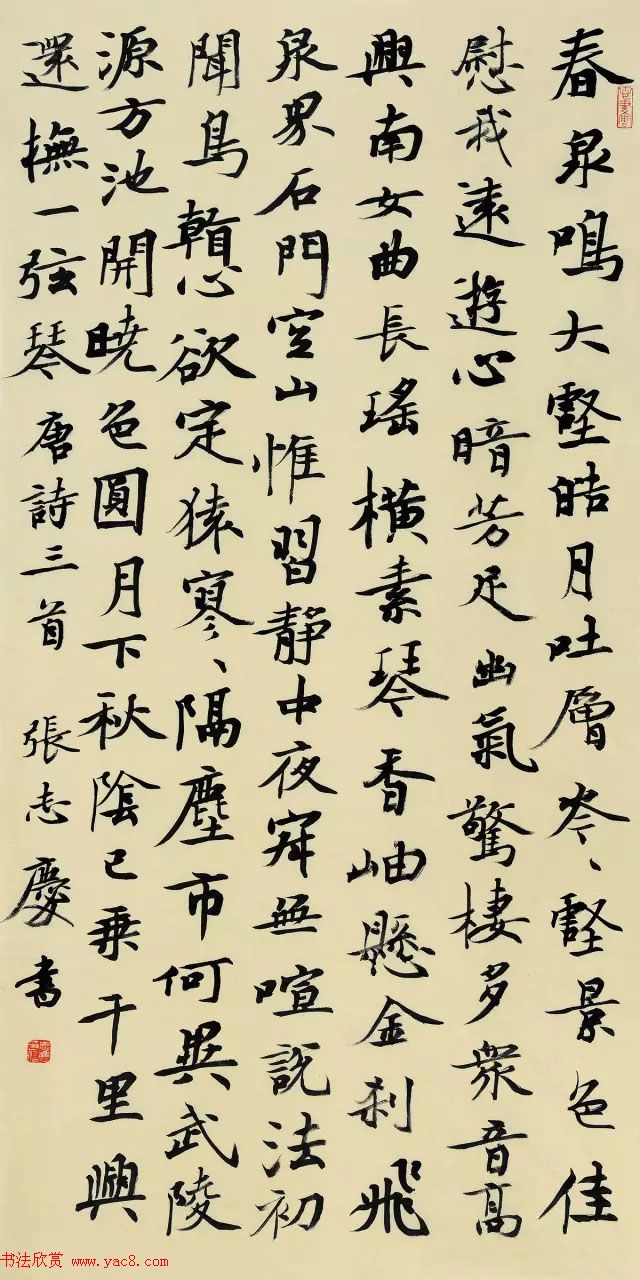 春泉鳴大壑皓月吐層岑、壑景色佳
慰我遠遊心暗芳足幽氣驚棲多衆音高
興南女曲長瑤橫素琴香岫懸金刹飛
泉界石門空山惟習靜中夜寂無喧説法初
聞鳥心欲定猿寥、隔塵市何異武陵
源方池開曉色圓月下秋陰已乘千里興
還撫一弦琴 唐詩三首 張志慶書
书法欣赏 www.yac8.com